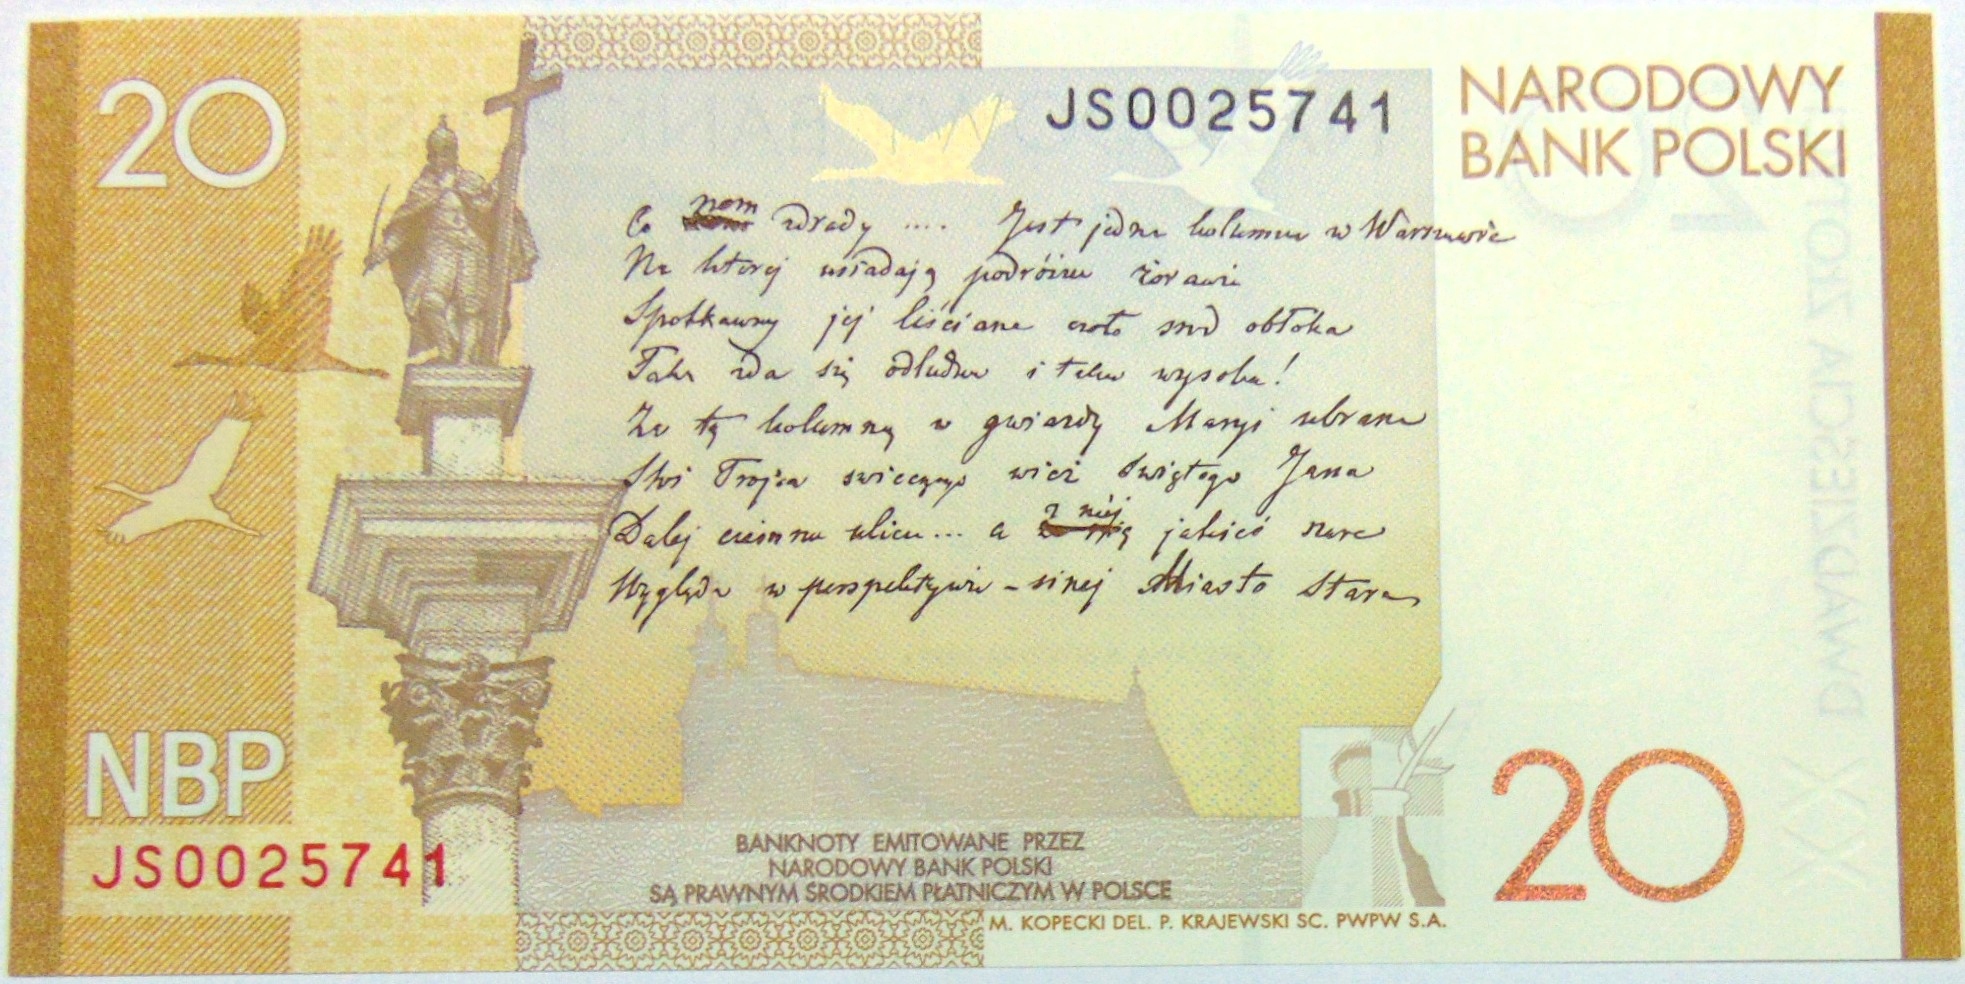 20
JS0025741
NARODOWY
BANK POLSKI
nam
Co zdrady .... Jest jedna kolumna w Warszawie
Na ktorej usiadają podróżne żórawie
Spotkawszy jej liściane czoło śród obłoka
Taka zda się odludna i taka wysoka!
Za tą kolumną w gwiazdy Maryi ubrana
Stoi Trójca świecącego wież świętego Jana
z niéj
Dalej ciemna ulica... a jakieś szare
Wygląda w perspektywie - sinej Miasto Stare
NBP
JS0025741
BANKNOTY EMITOWANE PRZEZ
NARODOWY BANK POLSKI
SĄ PRAWNYM ŚRODKIEM PŁATNICZYM W POLSCE
M. KOPECKI DEL. P. KRAJEWSKI SC. PWPW S.A.
20
XX DWADZIEŚCIA ZŁOTYCH